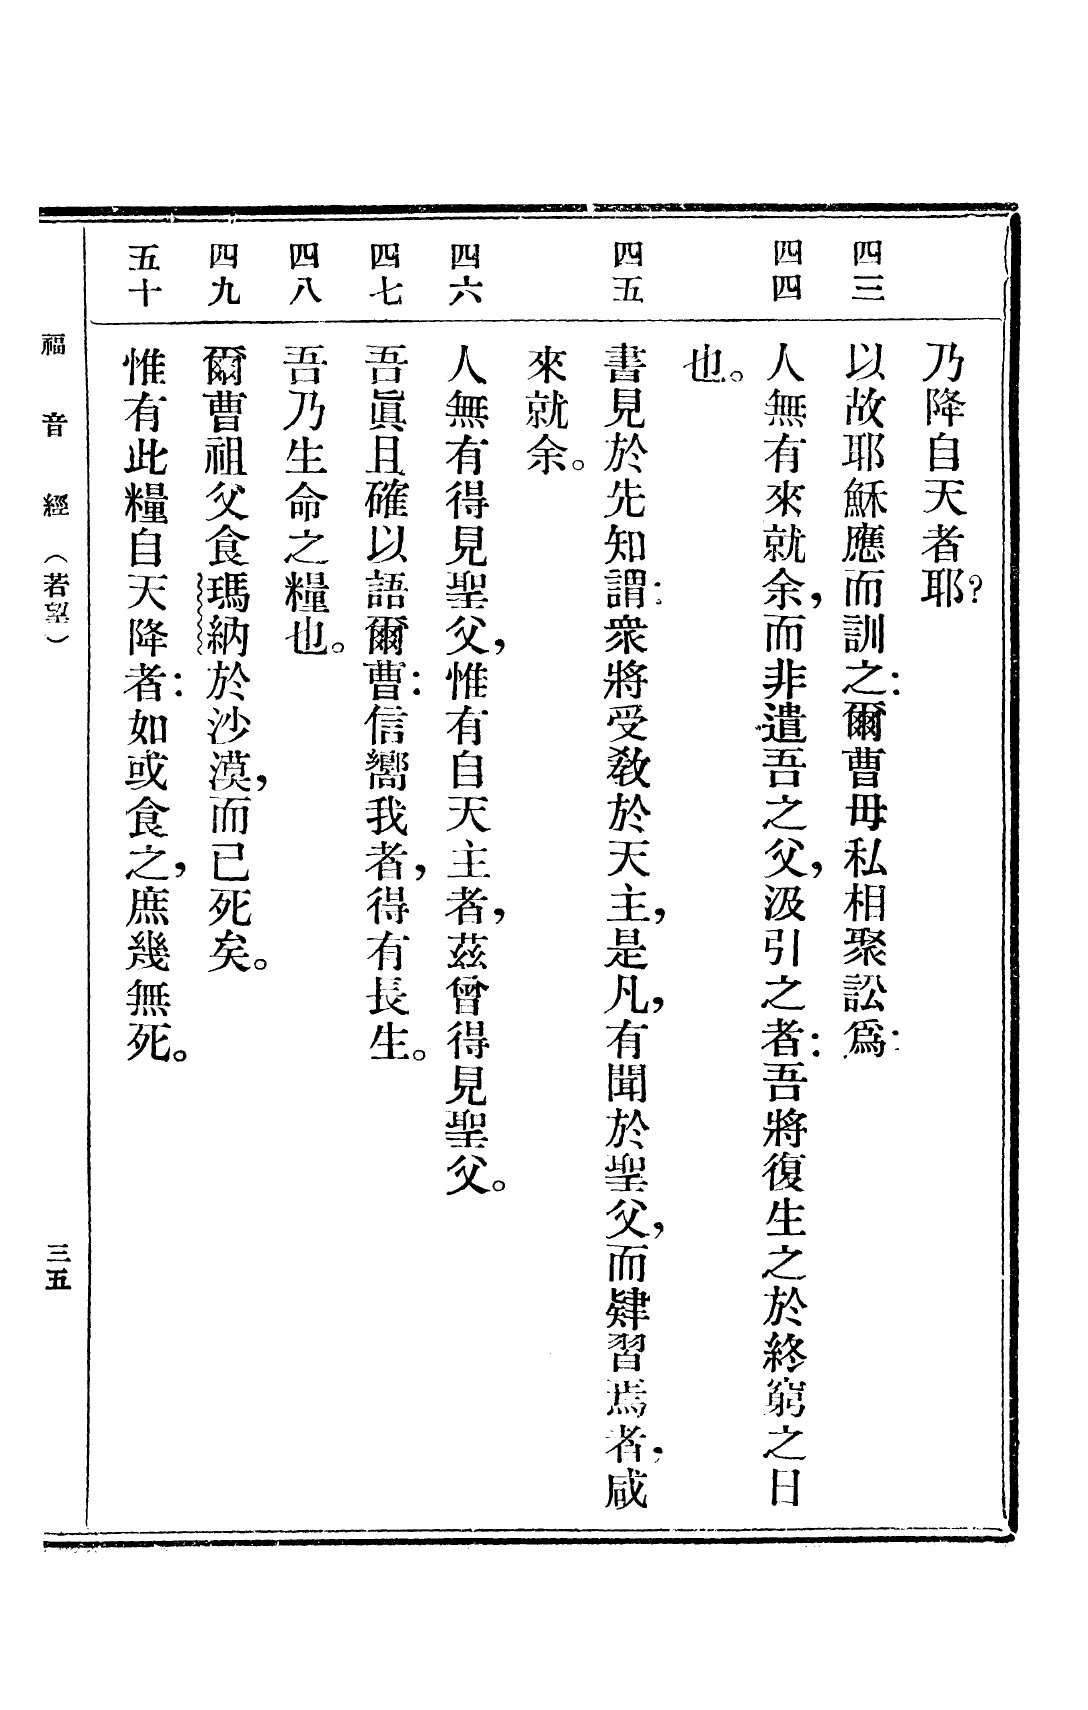 乃降自天者耶?
四三 以故耶穌應而訓之:爾曹毋私相聚訟爲:
四四 人無有來就余,而非遣吾之父,汲引之者:吾將復生之於終窮之日
也。
四五 書見於先知謂:衆將受敎於天主,是凡,有聞於聖父,而肄習焉者,咸
來就余。
四六 人無有得見聖父,惟有自天主者,茲曾得見聖父。
四七 吾眞且確以語爾曹:信嚮我者,得有長生。
四八 吾乃生命之糧也。
四九 爾曹祖父食瑪納於沙漠,而已死矣。
五十 惟有此糧自天降者:如或食之,庶幾無死。
福音經(若望)
三五